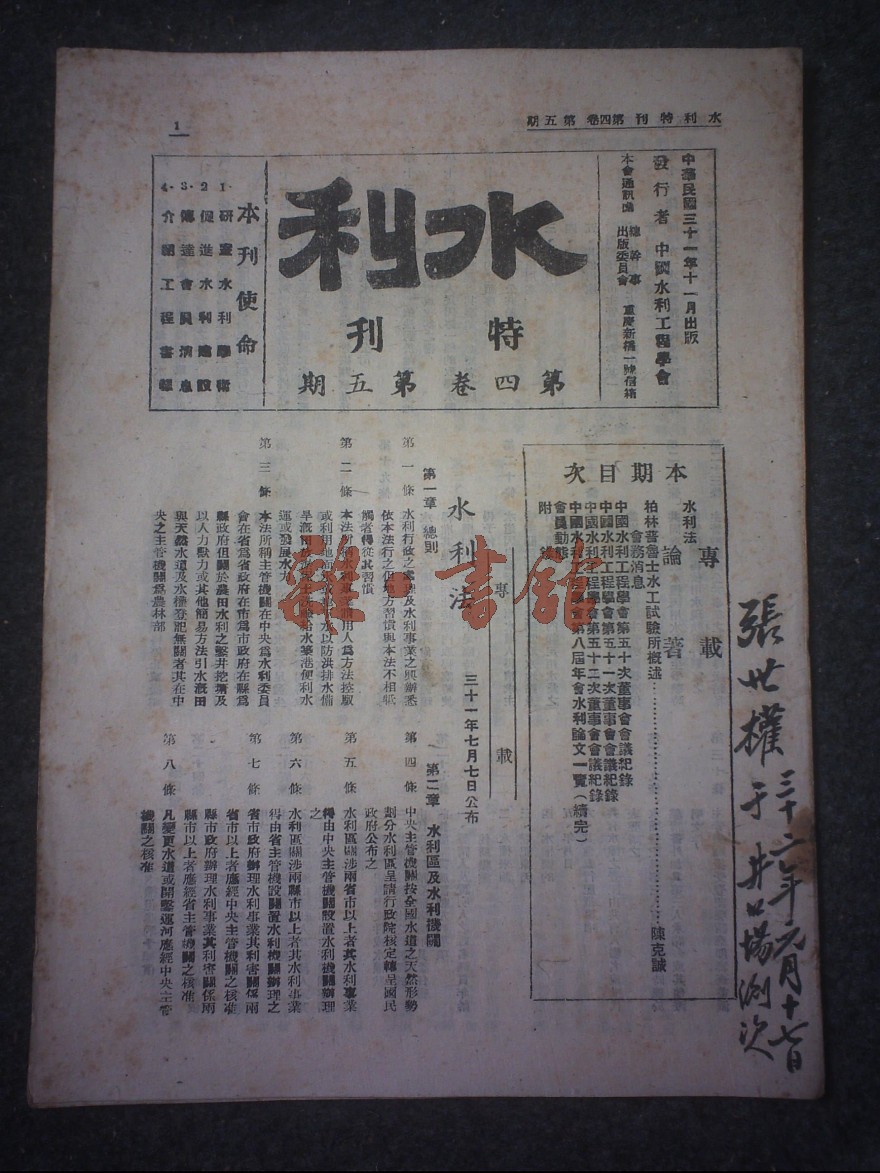 水利特刊第四卷第五期
1
中華民國三十一年十一月出版
發行者 中國水利工程學會
本會通訊處 總幹事 出版委員會 重慶新橋一號信箱
水利
特刊
第四卷第五期
本刊使命
1·研究水利學術
2·促進水利建設
3·傳達會員消息
4·介紹工程書報
本期目次
專載
水利法
論著
柏林普魯士水工試驗所概述……陳克誠
會務消息
中國水利工程學會第五十次董事會會議紀錄
中國水利工程學會第五十一次董事會會議紀錄
中國水利工程學會第五十二次董事會會議紀錄
中國水利工程學會第八屆年會水利論文一覽(續完)
會員動態
附錄
專載
水利法
三十一年七月七日公布
第一章 總則
第一條 水利行政之處理及水利事業之興辦悉
依本法行之但地方習慣與本法不相牴
觸者得從其習慣
第二條 本法所稱水利事業謂用人為方法控馭
或利用地面水或地下水以防洪排水備
旱溉田放淤保土洗鹼給水築港便利水
運或發展水力
第三條 本法所稱主管機關在中央為水利委員
會在省為省政府在市為市政府在縣為
縣政府但關於農田水利之鑿井挖塘及
以人力獸力或其他簡易方法引水溉田
與天然水道及水權登記無關者其在中
央之主管機關為農林部
第二章 水利區及水利機關
第四條 中央主管機關按全國水道之天然形勢
劃分水利區呈請行政院核定轉呈國民
政府公布之
第五條 水利區關涉兩省市以上者其水利事業
得由中央主管機關設置水利機關辦理
之
第六條 水利區關涉兩縣市以上者其水利事業
得由省主管機關設置水利機關辦理之
第七條 省市政府辦理水利事業其利害關係兩
省市以上者應經中央主管機關之核准
縣市政府辦理水利事業其利害關係兩
縣市以上者應經省主管機關之核准
第八條 凡變更水道或開鑿運河應經中央主管
機關之核准
張世權于井口場測次
三十二年元月十七日
雜書館